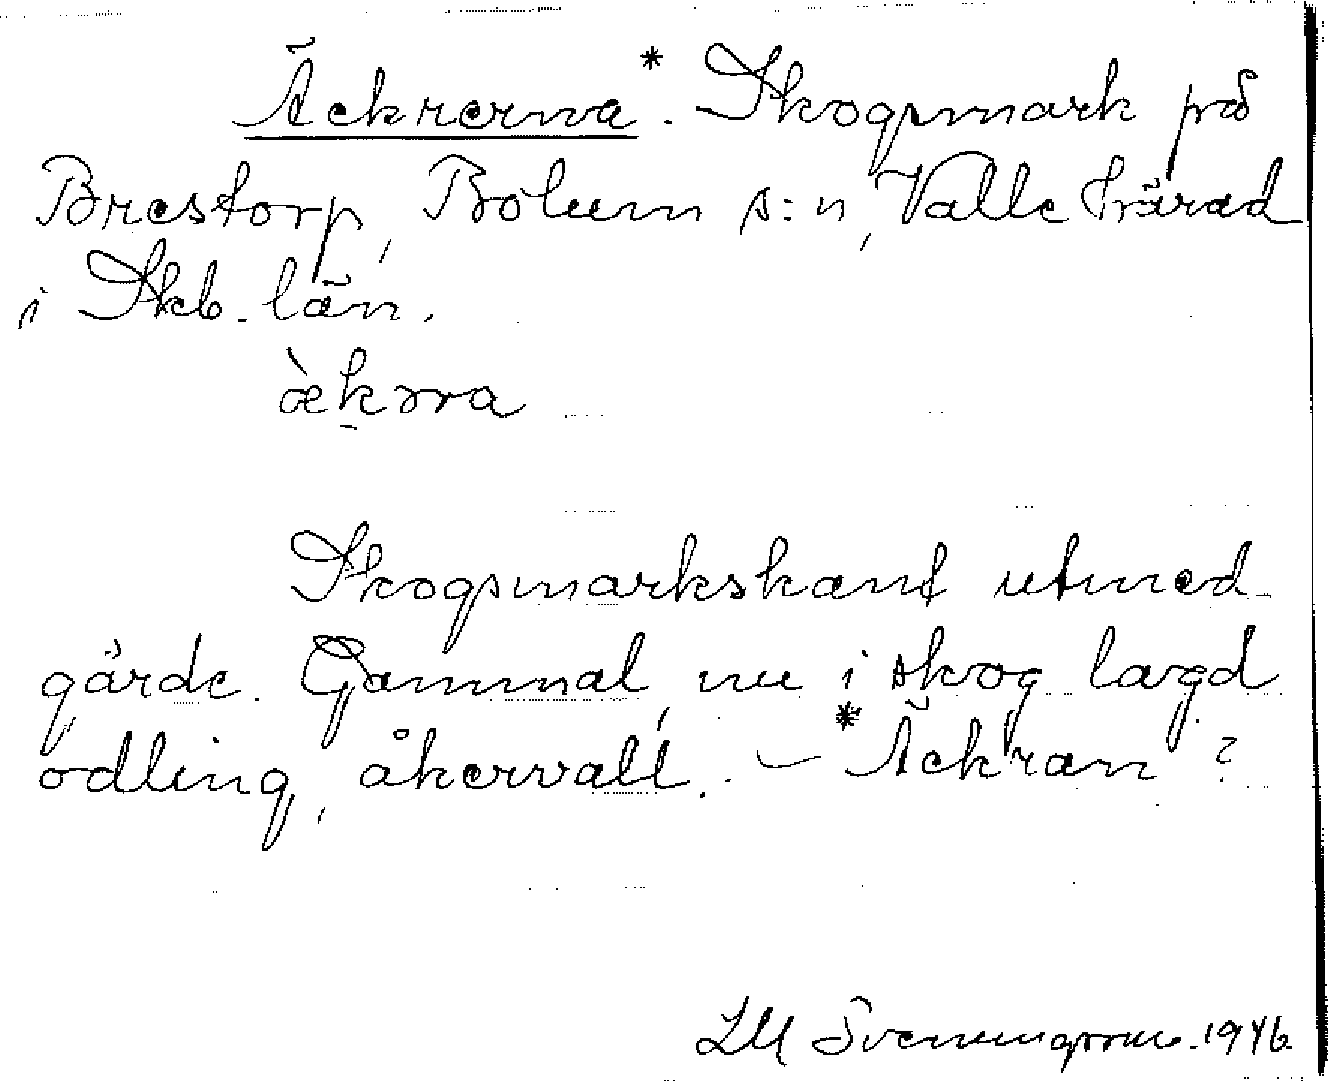 Äckrerna*. Skogsmark på
Brestorp, Bolum s:n, Valle härad
i Skb. län.
æ̀kɔrra
Skogsmarkskant utmed
gärde. Gammal, nu i skog lagd
odling, åkervall. – *Äckran ?
LM Svenungsson. 1946